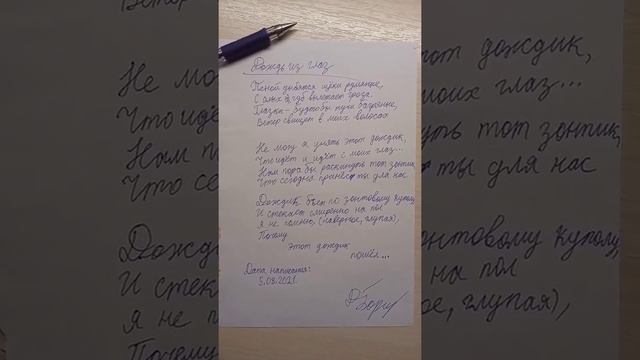 Дождь из глаз
Пеной дыбятся щёки румяные,
С алых губ вылетает гроза.
Глазки – будто бы тучи багряные,
Ветер свищет в моих волосах
Не могу я унять этот дождик,
Что идёт и идёт с моих глаз...
Нам пора бы раскинуть тот зонтик,
Что сегодня принёс ты для нас
Дождик бьёт по зонтовому куполу,
И стекает смиренно на пол
Я не помню, (наверное, глупая),
Почему
этот дождик
пошёл...
Дата написания:
5.09.2021.